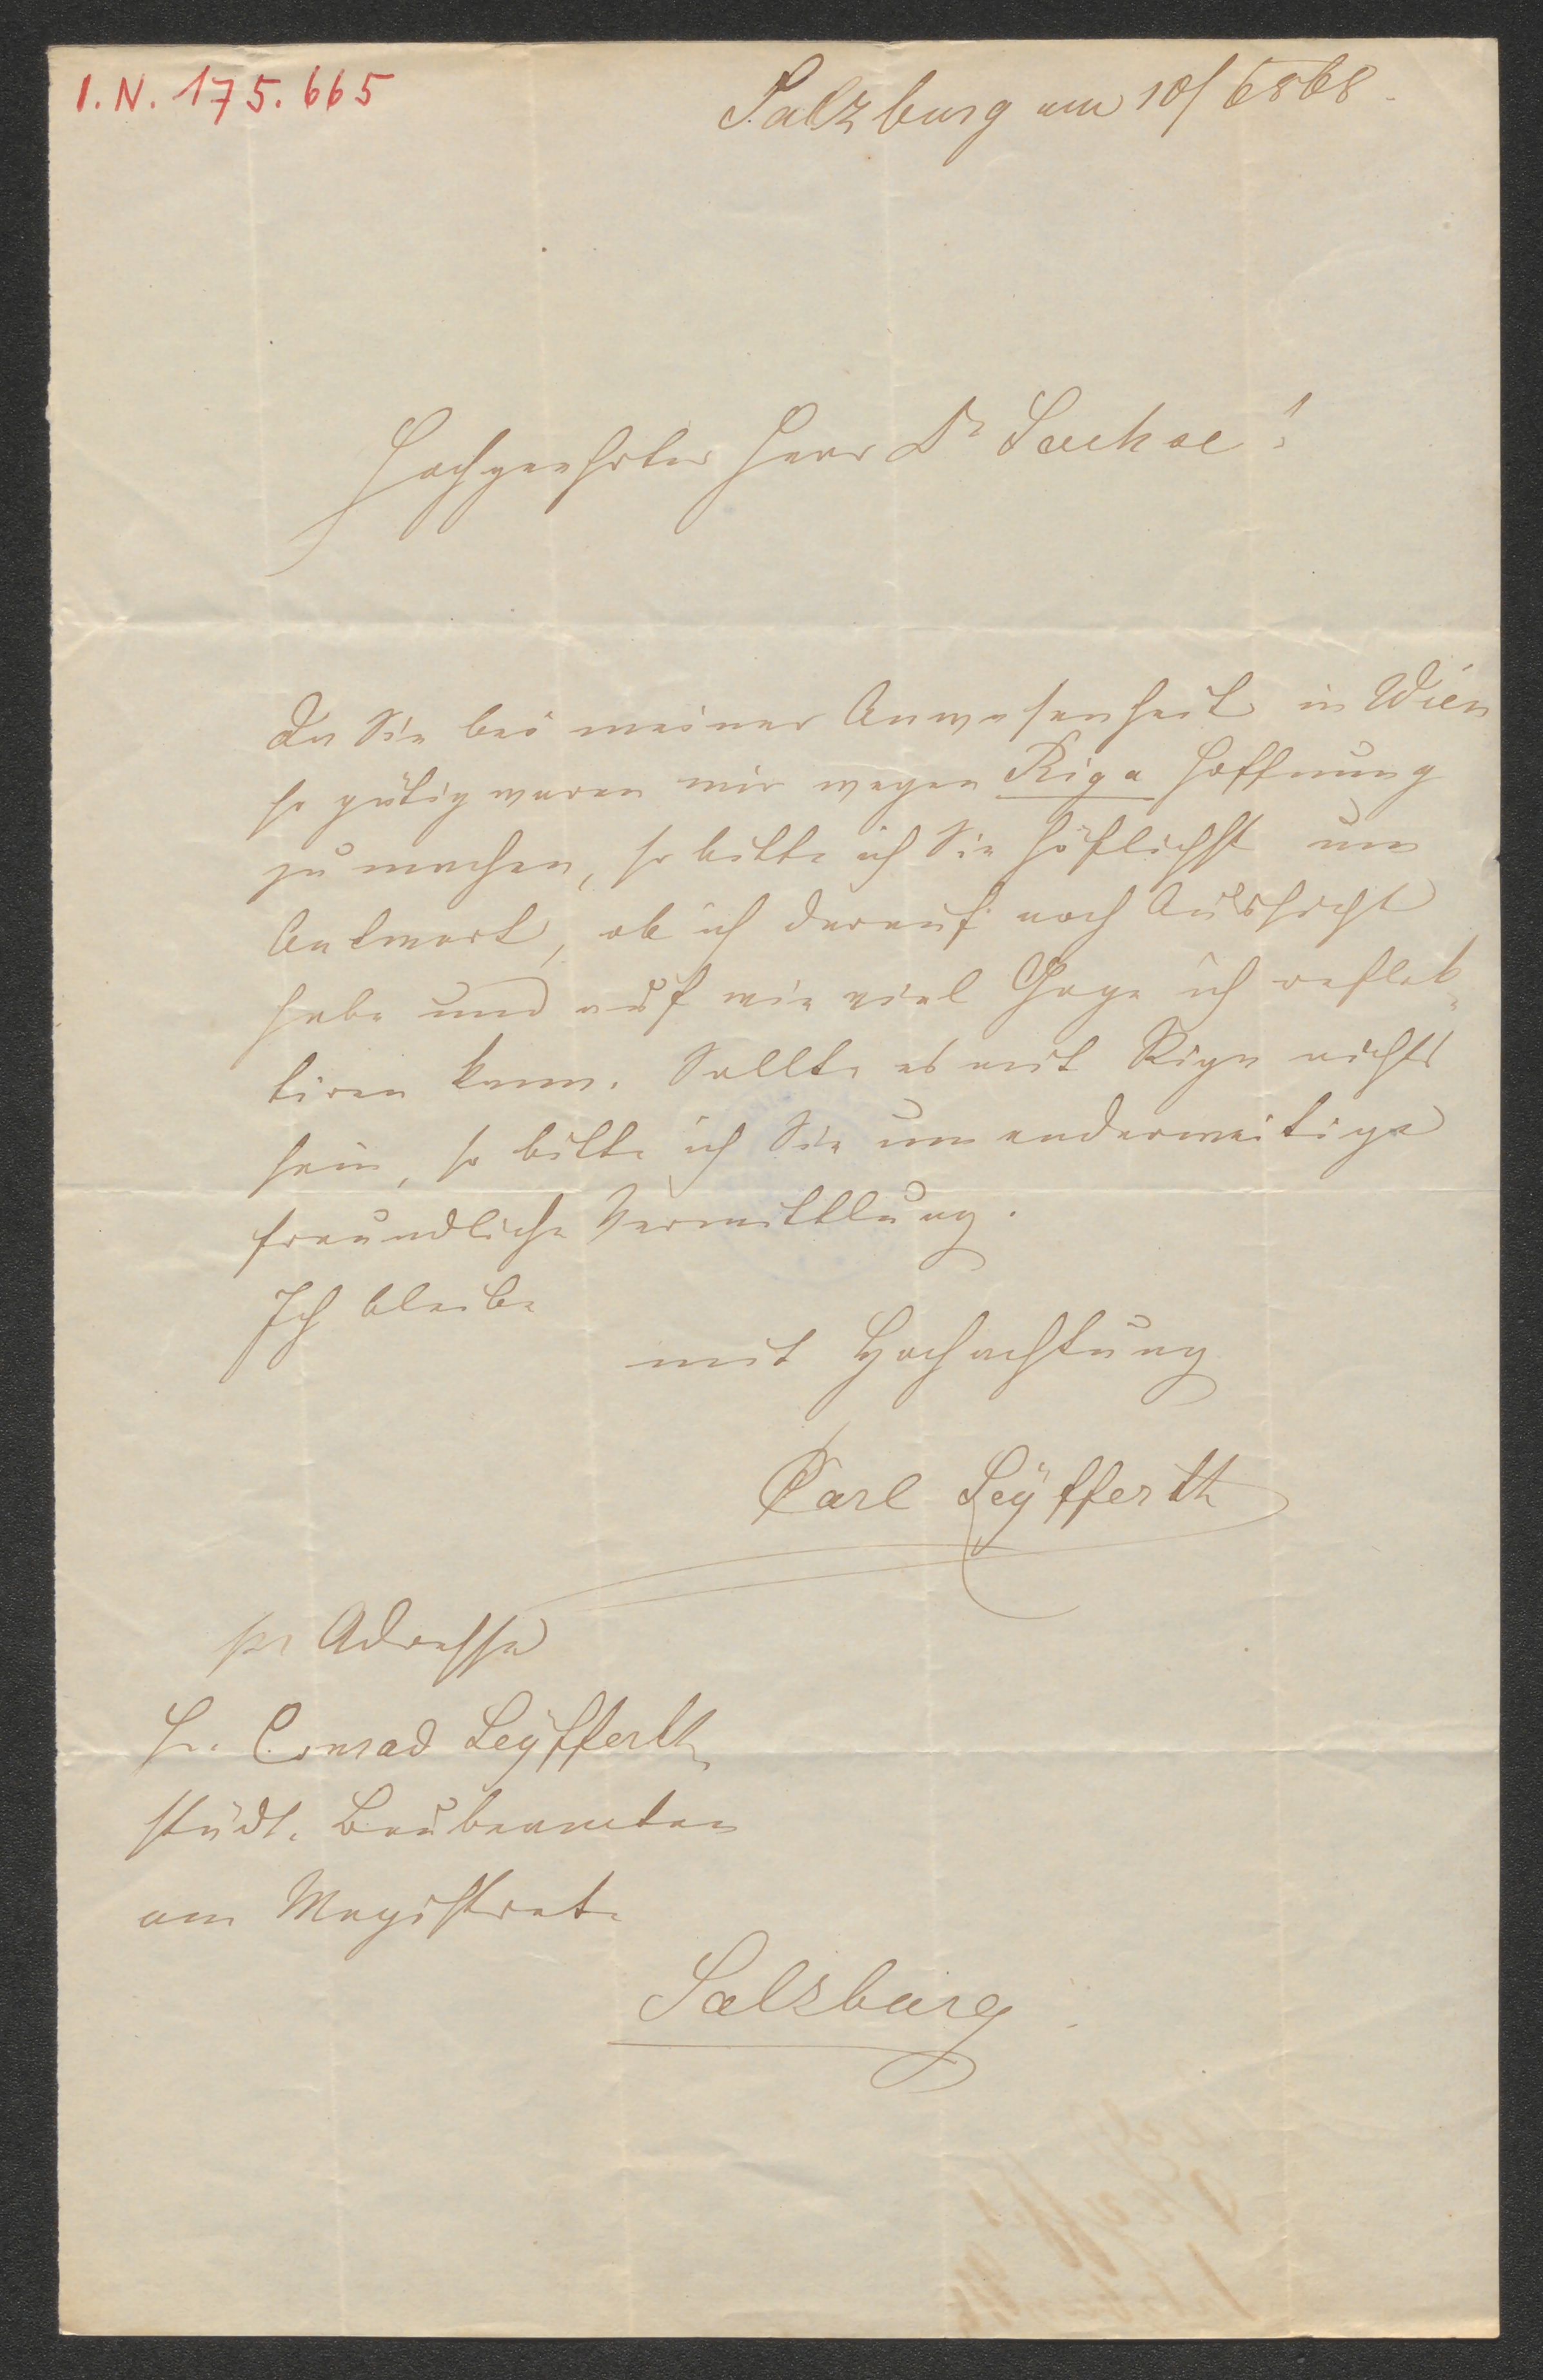 I.N. 175.665
Salzburg am 10/6 868.
Hochgeehrter Herr Dr Sachse!
Da Sie bei meiner Anwesenheit in Wien
so gütig waren mir wegen Riga Hoffnung
zu machen, so bitte ich Sie höflichst um
Antwort, ob ich darauf noch Aussicht
habe und auf wie viel Gage ich reflek-
tiren kann. Sollte es mit Riga nichts
sein, so bitte ich Sie um anderweitige
freundliche Vermittlung.
Ich bleibe
mit Hochachtung
Carl Seÿfferth
pr Adresse
Hr. Conrad Seÿfferth
städt. Baubeamten
am Magistrate
Salzburg